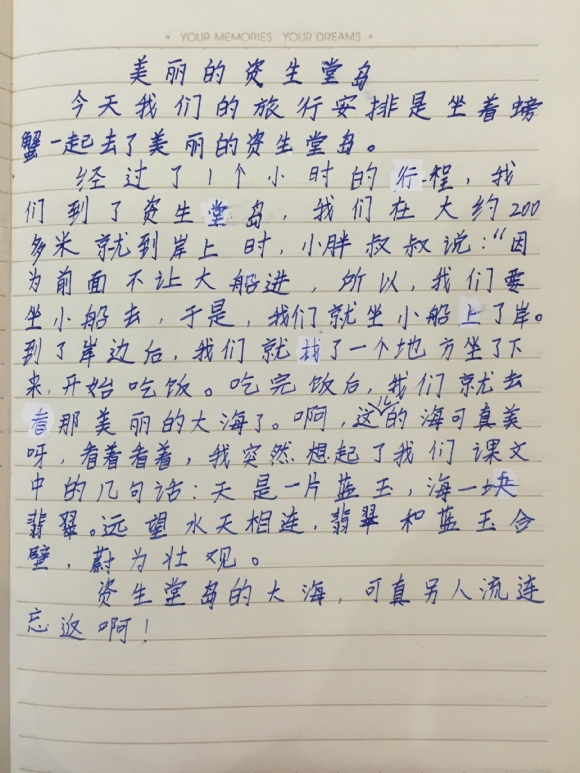 YOUR MEMORIES YOUR DREAMS
美丽的资生堂岛
今天我们的旅行安排是坐着螃
蟹一起去了美丽的资生堂岛。
经过了1个小时的行程，我
们到了资生堂岛，我们在大约200
多米就到岸上时，小胖叔叔说：“因
为前面不让大船进，所以，我们要
坐小船去，于是，我们就坐小船上了岸。
到了岸边后，我们就找了一个地方坐了下
来，开始吃饭。吃完饭后，我们就去
看那美丽的大海了。啊，这儿的海可真美
呀，看着看着，我突然想起了我们课文
中的几句话：天是一片蓝玉，海一块
翡翠。远望水天相连，翡翠和蓝玉合
璧，蔚为壮观。
资生堂岛的大海，可真另人流连
忘返啊！